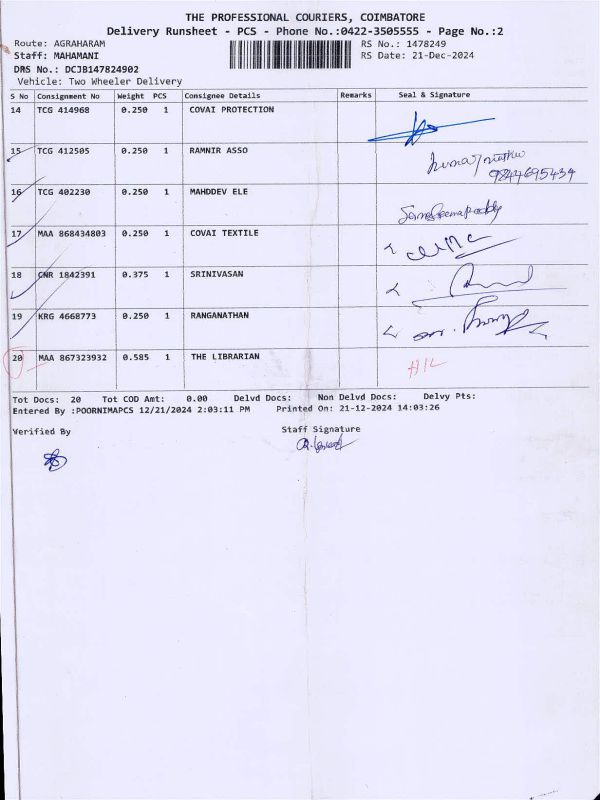 THE PROFESSIONAL COURIERS, COIMBATORE
Delivery Runsheet - PCS - Phone No.:0422-3505555 - Page No.:2
Route: AGRAHARAM RS No.: 1478249
Staff: MAHAMANI RS Date: 21-Dec-2024
DRS No.: DCJB147824902
Vehicle: Two Wheeler Delivery
S No Consignment No Weight PCS Consignee Details Remarks Seal & Signature
14 TCG 414968 0.250 1 COVAI PROTECTION
15 TCG 412505 0.250 1 RAMNIR ASSO
9844695434
16 TCG 402230 0.250 1 MAHDDEV ELE
17 MAA 868434803 0.250 1 COVAI TEXTILE
18 CNR 1842391 0.375 1 SRINIVASAN
19 KRG 4668773 0.250 1 RANGANATHAN
20 MAA 867323932 0.585 1 THE LIBRARIAN
Tot Docs: 20 Tot COD Amt: 0.00 Delvd Docs: Non Delvd Docs: Delvy Pts:
Entered By :POORNIMAPCS 12/21/2024 2:03:11 PM Printed On: 21-12-2024 14:03:26
Verified By Staff Signature